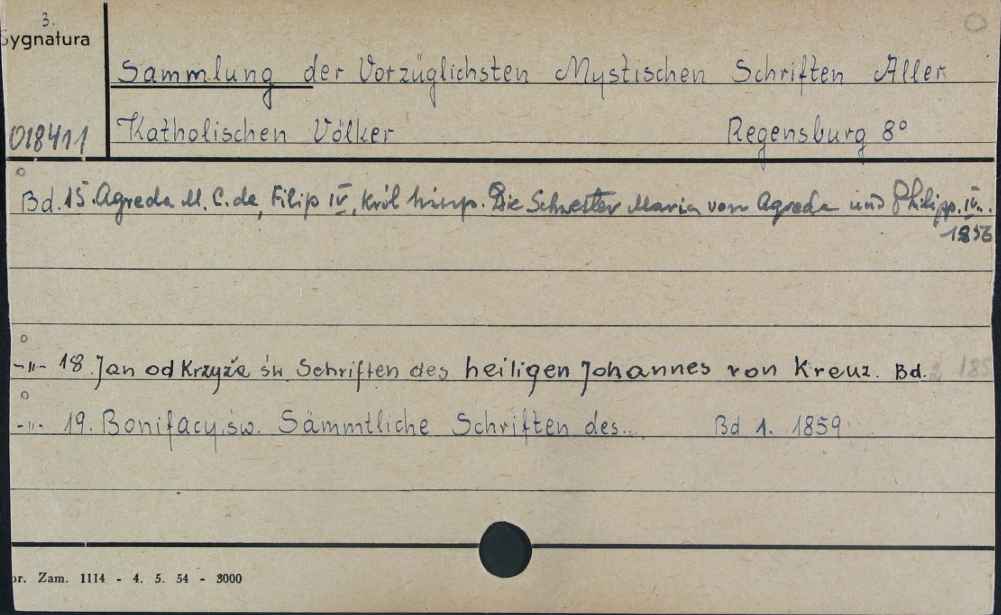 3.
Sygnatura
Sammlung der Vorzüglichsten Mystischen Schriften Aller
018411 Katholischen Völker Regensburg 8°
Bd. 15. Agreda M. C. de, Filip IV, Król hiszp. Die Schwester Maria von Agreda und Philipp. IV.
1856
-"- 18. Jan od Krzyża św. Schriften des heiligen Johannes von Kreuz. Bd. 2 185
-"- 19. Bonifacy, św. Sämmtliche Schriften des... Bd 1. 1859
or. Zam. 1114 - 4. 5. 54 - 3000